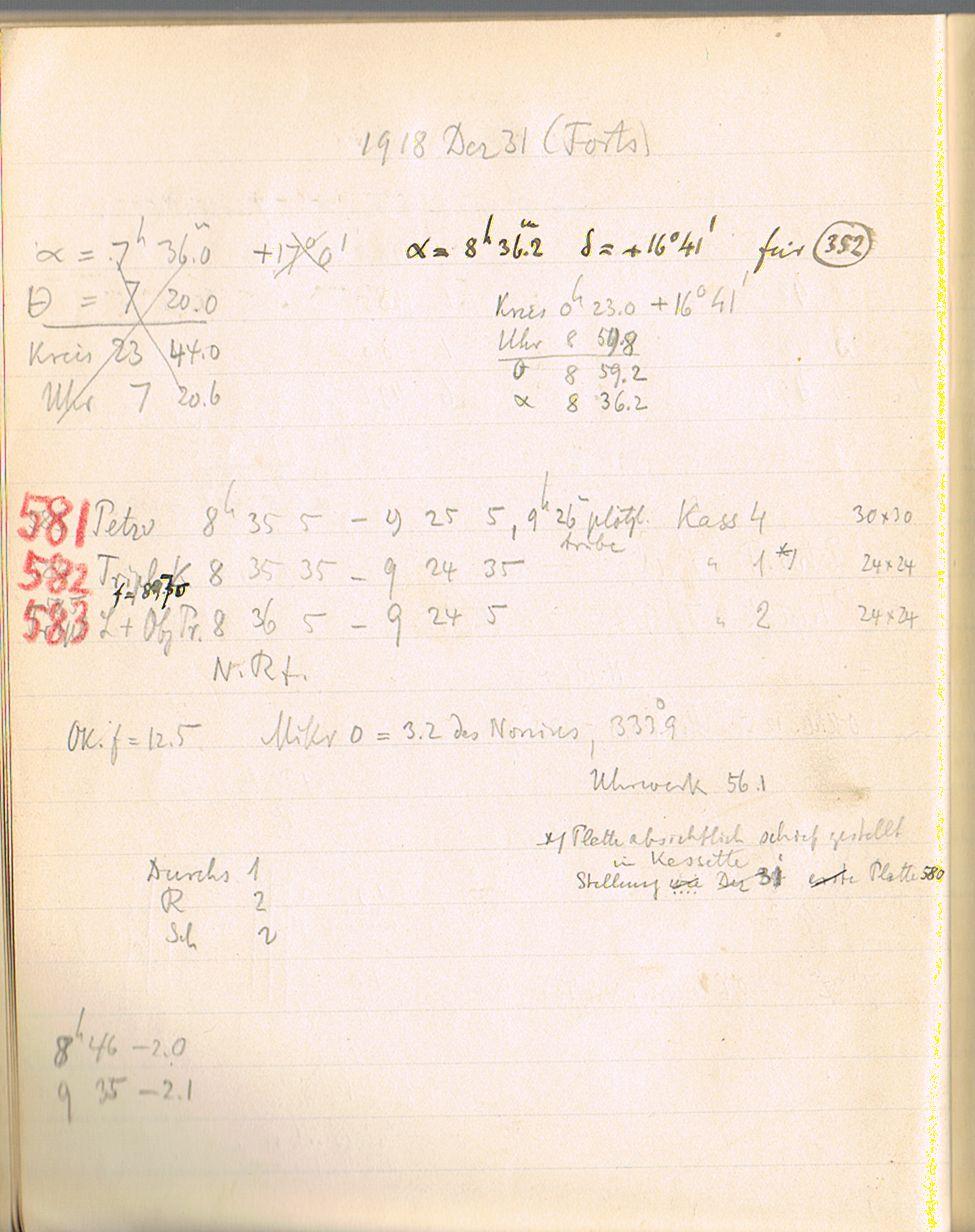 1918 Dez 31 (Forts)
α = 7ʰ 36.ᵐ0 +17° 0'
θ = 7 20.0
Kreis 23 44.0
Uhr 7 20.6
α = 8ʰ 36.ᵐ2 δ = +16° 41' für 352
Kreis 0ʰ 23.0 +16° 41'
Uhr 8 59.8
θ 8 59.2
α 8 36.2
581 Petzv 8ʰ 35 5 – 9 25 5, 9ʰ 26 plötzl. trübe Kass 4 30×30
582 8 35 35 – 9 24 35 " 1 *) 24×24
583 L + Obj Pr. 8 36 5 – 9 24 5 " 2 24×24
N. Rf.
Ok. f = 12.5 Mikr 0 = 3.2 des Nonius, 333.°9
Uhrwerk 56.1
*) Platte absichtlich schief gestellt
in Kassette
Stellung wie Dez 31 erste Platte 580
Durchs 1
R 2
Sch 2
8ʰ 46 – 2.0
9 35 – 2.1